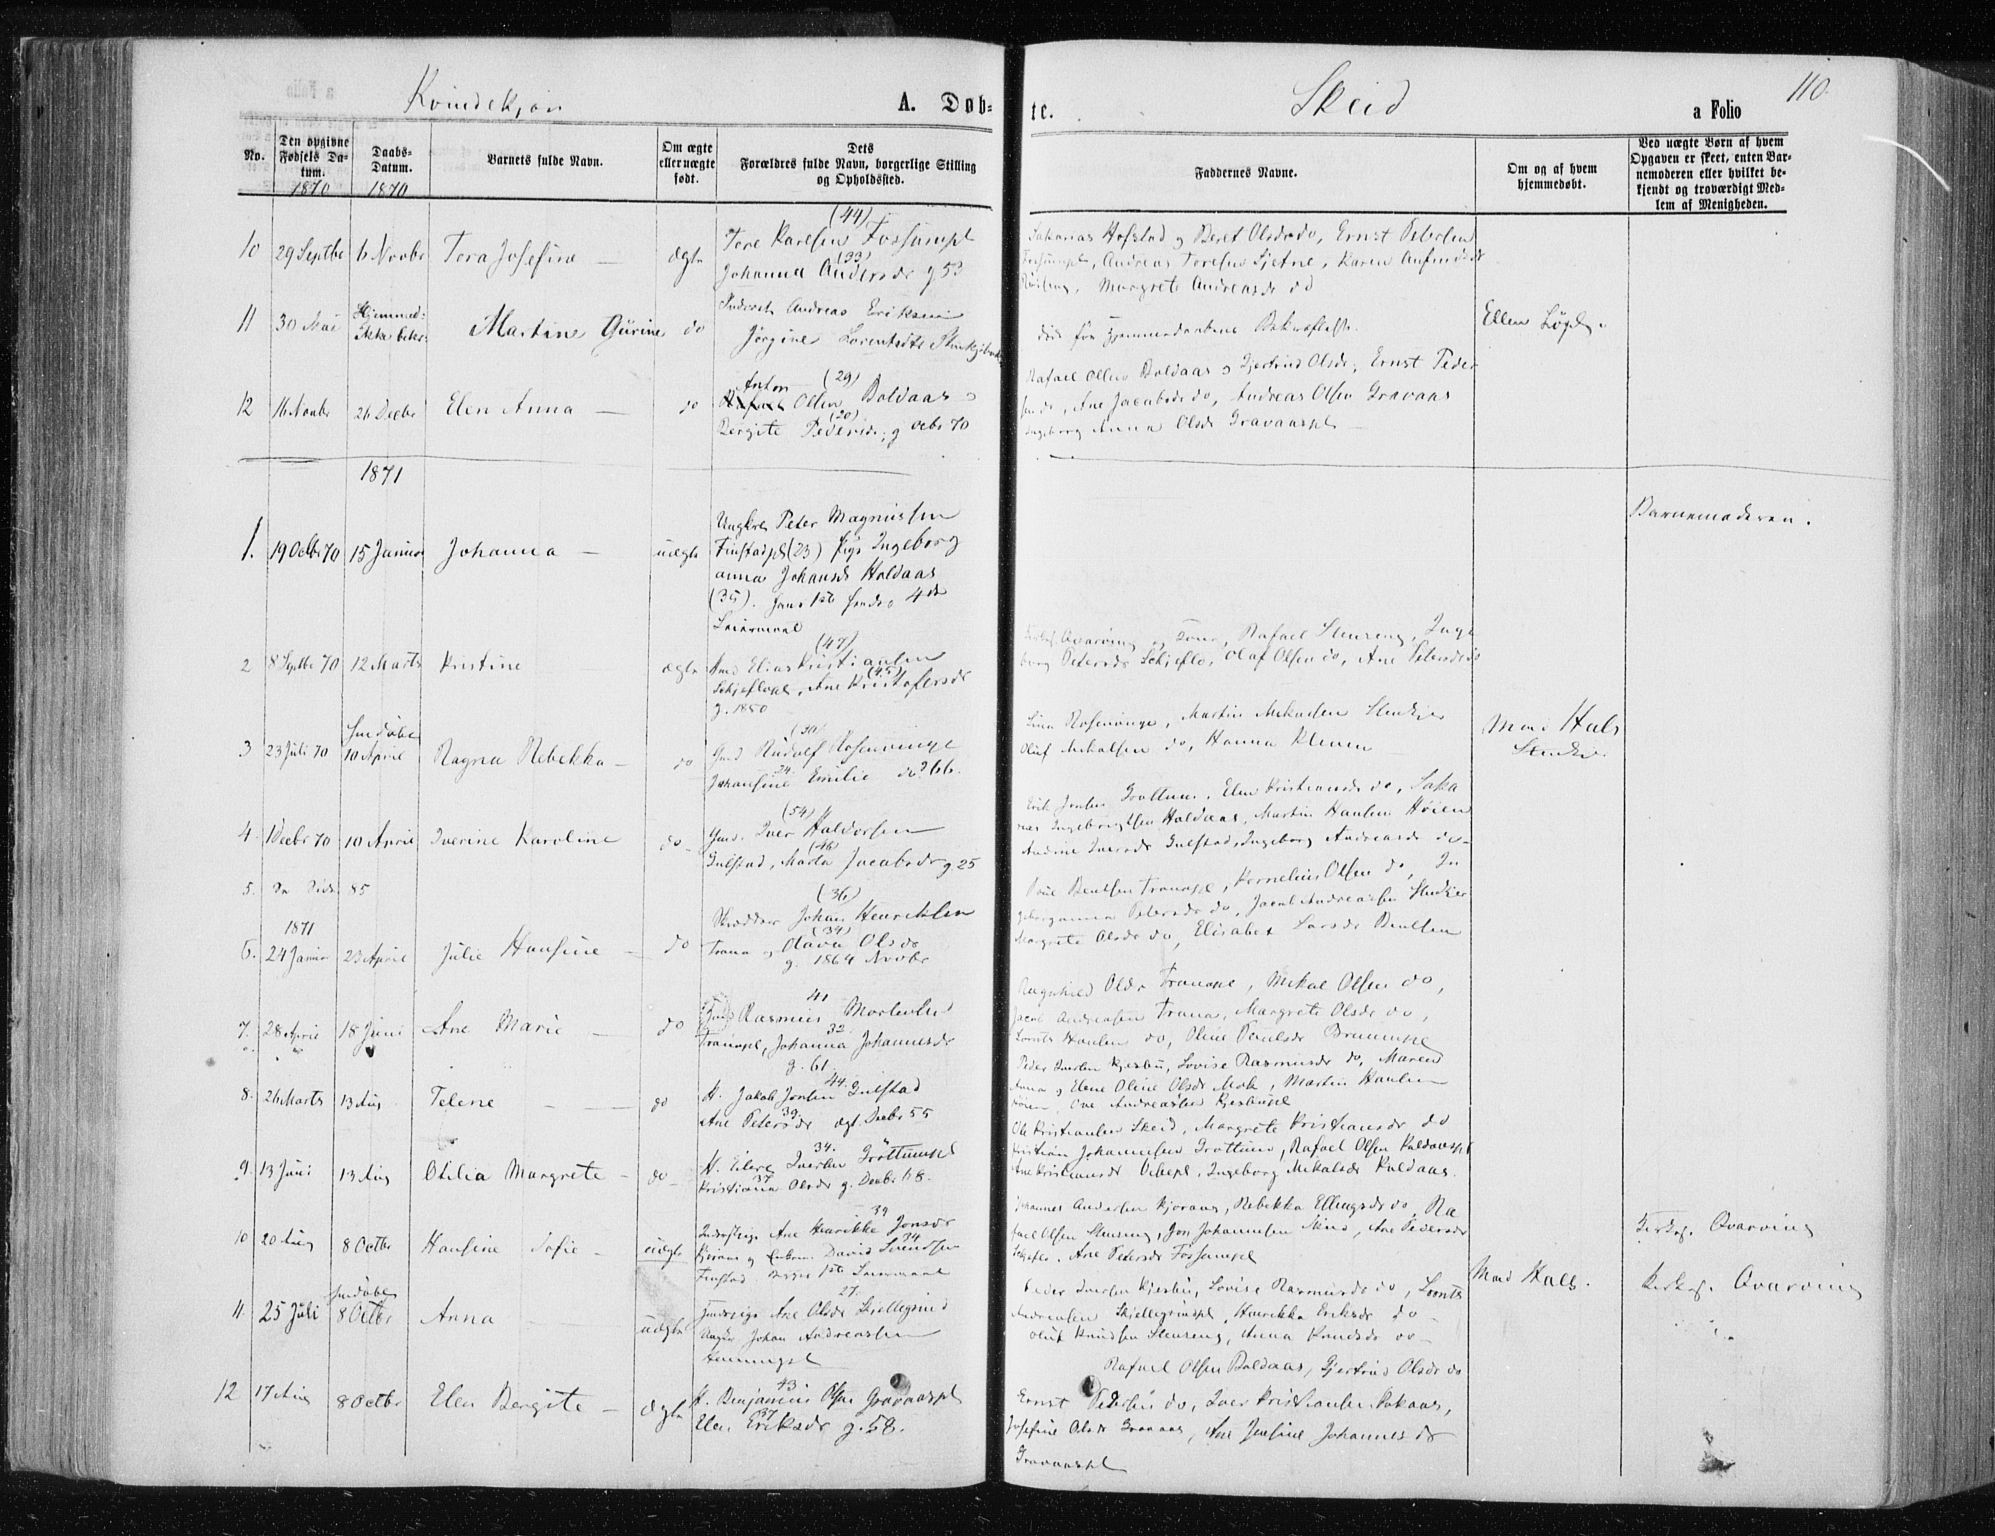 Kvindekjøn
A. Døb-
te.
Skeid
a Folio
110
No.
Den opgivne Fødsels Da-tum.
1870
Daabs-Datum.
1870
Barnets fulde Navn.
Om ægte eller uægte født.
Dets Forældres fulde Navn, borgerlige Stilling og Opholdssted.
Faddernes Navne.
Om og af hvem hjemmedøbt.
Ved uægte Børn af hvem Opgaven er skeet, enten Bar-nemoderen eller hvilket be-kjendt og troværdigt Med-lem af Menigheden.
10 29 Septbr 6 Novbr Tora Josefine — ægte
(44)
Tore Karlsen Fossumpl
(33)
Johanna Andersdr g 53
Sakarias Hofstad og Beret Olsdr do, Ernst Petersen
Andreas Toresen
Margrete Andreasdr do
11 30 Mai Hjemmed: Ikke bekr: Martine Gurine do
Inderst Andreas Eriksen
Jørgine Lorentsdtr
død før Hjemmedaabens Bekræftelse
12 16 Novbr 26 Decbr Elen Anna — do
Anton (29)
Rafael Olsen Boldaas
(20)
Bergite Pedersdr, g Octbr 70
Rafael Olsen Boldaas og Gjertrud Olsdr, Ernst Peder
sen do, Ane Jacobsdr do, Andreas Olsen Gravaas
Ingeborg Anna Olsdr Gravaaspl —
1871
Barnemoderen.
1. 19 Octbr 70 15 Januar Johanna — uægte
Ungkrl Peter Magnussen
Finstadpl (23) Pige Ingeborg
Anna Johansdr Holdaas
(35). hans 1ste hendes 4de
Leiermaal
2 8 Septbr 70 12 Marts Kristine ægte
(47)
Elias Kristiansen
(45)
Skjeflopl, Ane Kristofersdr
g. 1850
Qvarving og Kone, Rafael Stuseng, Inge
borg Petersdr Skjeflo, Olaf Olsen do, Ane Petersdr do
3 23 Juli 70 Hmdøbt 10 April Ragna Rebekka — do
(30)
Gmd Rudolf Rosenvinge
24.
Johansine Emilie do g 66.
Lina Rosenvinge, Martin Mikalsen
Oluf Mikalsen do, Hanna Kleven
4. 1 Decbr 70 10 April Iverine Karoline do
(54)
Gmd. Iver Haldorsen
(46)
Gulstad, Marta Jacobsdr g 25
Erik Jonsen Grøttum, Elen Kristiansdr do, Saka
rias Ingebrigtsen Holdaas, Martin Hansen Høien
Andrine Iversdr Gulstad, Ingeborg Andreasdr do
5. Se Side 85
1871
6. 24 Januar 23 April Julie Hansine — do
(36)
Skrædder Johan Henriksen
(34)
Trana og Olava Olsdr
g. 1864 Novbr
Poul Bentsen Tranapl, Kornelius Olsen do, In
geborganna Petersdr do, Jacob Andreassen
Margrete Olsdr do, Elisabet Larsdr Bentsen
7. 28 April 18 Juni Ane Marie — do
41
Gmd Rasmus Mortensen
32.
Tranapl, Johanna Johannesdr
g. 61
Ragnhild Olsdr Tranapl, Mikal Olsen do,
Jacob Andreassen Trana, Margrete Olsdr do,
Lornts Hansen do, Oline Paulsdr
8. 26 Marts 13 Aug Telene — do
44.
H. Jakob Jonsen Gulstad
39.
Ane Petersdr ægt. Decbr 55
Peder Iversen Kjesbu, Lovise Rasmusdr do, Maren
Anna og Elene Oline Olsdr Moe, Martin Hansen
Høien, Ove Andreassen Kjesbupl
9. 13 Juni 13 Aug Otilia Margrete — do
34.
H. Eilert Iversen Grøttumpl
37
Kristiana Olsdr g. Decbr 68.
Ole Kristiansen Skeid, Margrete Kristiansdr do
Kristian Johannesen Grøttum, Rafael Olsen Boldaaspl
Ane Kristiansdr, Ingeborg Mikalsdr Boldaas.
10 20 Aug 8 Octbr Hansine Sofie — uægte
39
Inderstpige Ane Henrikke Jonsdr
34
Kjøraas og Enkem. David Svendsen
Finstad. begges 1ste Leiermaal
Johannes Andersen Kjøraas, Rebekka Ellingsdr do, Ra
fael Olsen Stuseng, Jon Johannesen, Ane Pedersdr
Skjeflo, Ane Petersdr Fossumpl
Kirkes. Qvarving
11 25 Juli Hmdøbt 8 Octbr Anna — uægte
27.
Inderstpige Ane Olsdr Skjellegrind
Ungkr Johan Andreassen
Hammerpl
Peder Iversen Kjesbu, Lovise Rasmusdr do, Lornts
Andreasen Skjellegrindpl, Henrikke Eriksdr do
Oluf Knudsen Stuseng, Anna Knudsdr do
Mad Hals.
Kirkes. Qvarving
12 17 Aug 8 Octbr Elen Bergite — ægte
43
H. Benjamin Olsen Gravaaspl
37
Elen Eriksdr g. 58.
Rafael Olsen Boldaas, Gjertrud Olsdr do
Ernst Pedersen do, Iver Kristiansen
Josefine Olsdr Gravaas, Ane Josefine Johannesdr
Gravaaspl